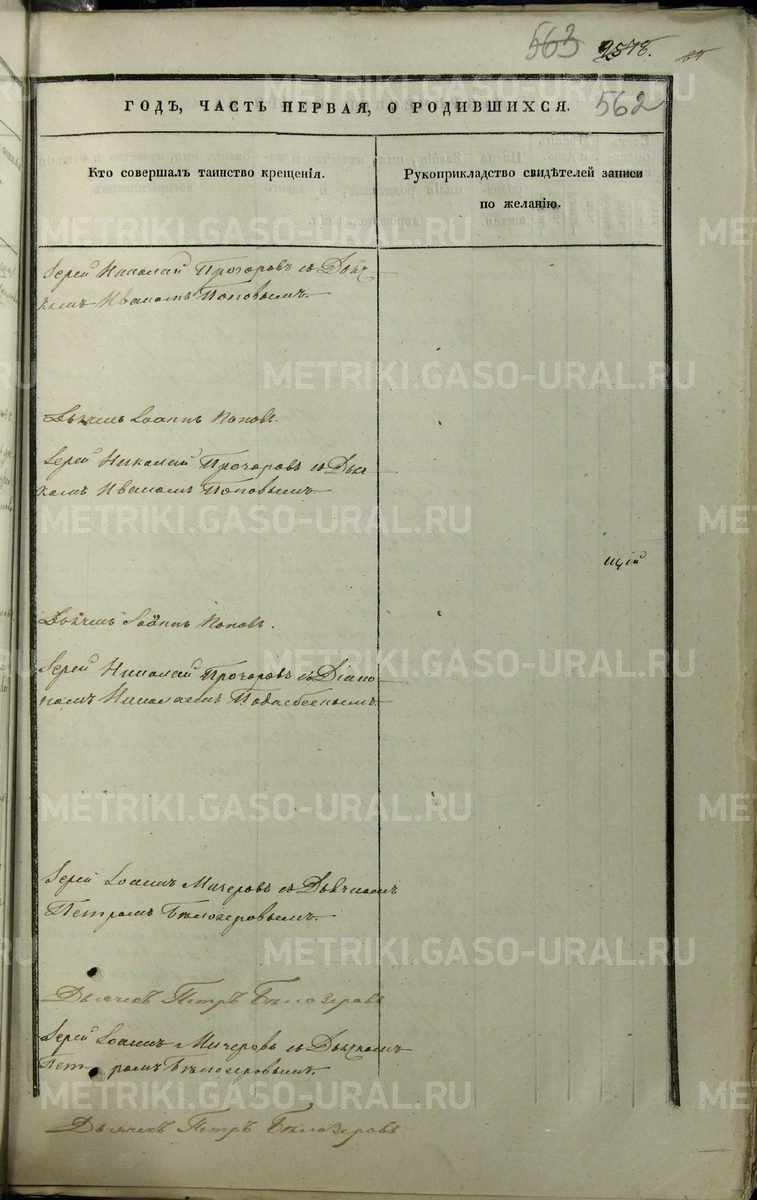 563 2578.
562
ГОДЪ, ЧАСТЬ ПЕРВАЯ, О РОДИВШИХСЯ.
Кто совершалъ таинство крещенія.
Рукоприкладство свидѣтелей записи
по желанію.
Іерей Николай Прочоровъ съ Дьяч
комъ Иваномъ Поповымъ.
Дьячекъ Іоаннъ Поповъ.
Іерей Николай Прочоровъ съ Дьяч
комъ Иваномъ Поповымъ
щій
Дьячекъ Іоаннъ Поповъ.
Іерей Николай Прочоровъ съ Діако
номъ Николаемъ
Іерей Іоаннъ Мичеровъ съ Дьячкомъ
Петромъ Бѣлозеровымъ.
Дьячекъ Петръ Бѣлозеровъ
Іерей Іоаннъ Мичеровъ съ Дьячкомъ
Петромъ Бѣлозеровымъ.
Дьячекъ Петръ Бѣлозеровъ
METRIKI.GASO-URAL.RU